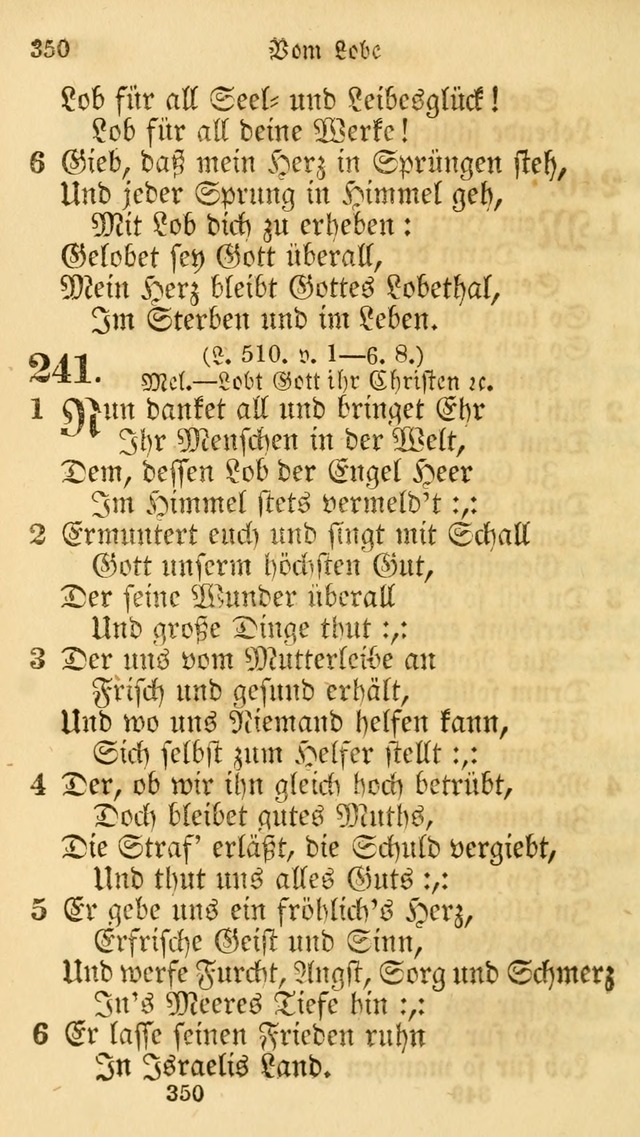 350 Vom Lobe
Lob für all Seel⸗ und Leibesglück!
Lob für all deine Werke!
6 Gieb, daß mein Herz in Sprüngen steh,
Und jeder Sprung in Himmel geh,
Mit Lob dich zu erheben:
Gelobet sey Gott überall,
Mein Herz bleibt Gottes Lobethal,
Im Sterben und im Leben.
241. (L. 510. v. 1—6. 8.)
Mel.—Lobt Gott ihr Christen ꝛc.
1 Nun danket all und bringet Ehr
Ihr Menschen in der Welt,
Dem, dessen Lob der Engel Heer
Im Himmel stets vermeld't :,:
2 Ermuntert euch und singt mit Schall
Gott unserm höchsten Gut,
Der seine Wunder überall
Und große Dinge thut :,:
3 Der uns vom Mutterleibe an
Frisch und gesund erhält,
Und wo uns Niemand helfen kann,
Sich selbst zum Helfer stellt :,:
4 Der, ob wir ihn gleich hoch betrübt,
Doch bleibet gutes Muths,
Die Straf' erläßt, die Schuld vergiebt,
Und thut uns alles Guts :,:
5 Er gebe uns ein fröhlich's Herz,
Erfrische Geist und Sinn,
Und werfe Furcht, Angst, Sorg und Schmerz
In's Meeres Tiefe hin :,:
6 Er lasse seinen Frieden ruhn
In Israelis Land.
350